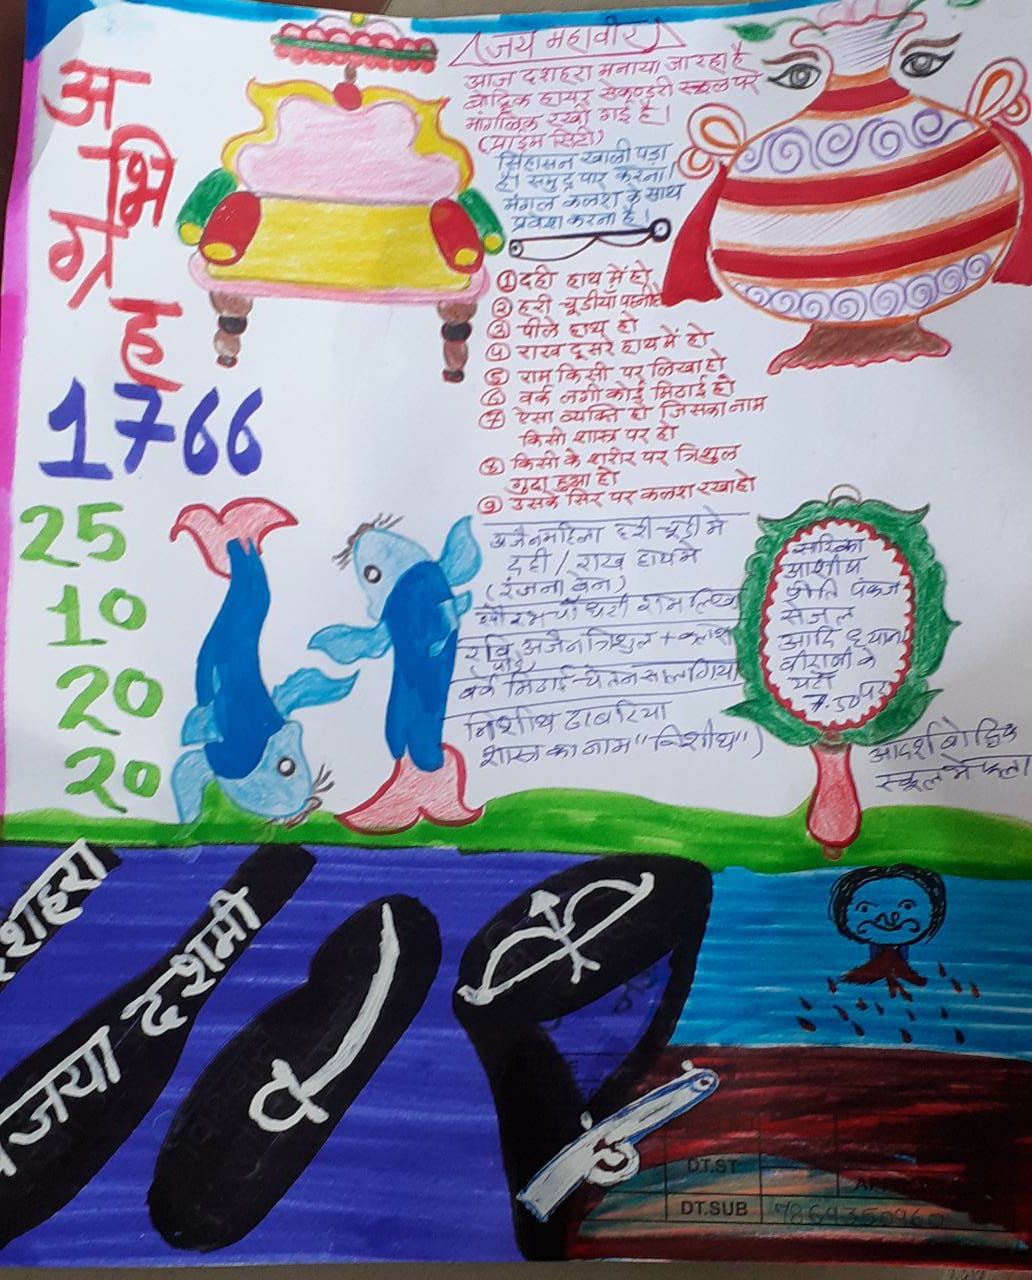 अभिग्रह
1766
25
10
20
20
जय महावीर
आज दशहरा मनाया जा रहा है
बोद्धिक हायर सेकण्डरी स्कूल पर
मांगलिक रखी गई है।
(प्राइम सिटी)
सिंहासन खाली पड़ा
है। समुद्र पार करना।
मंगल कलश के साथ
प्रवेश करना है।
① दही हाथ में हो
② हरी चूडीयाँ पहनी
③ पीले हाथ हो
④ राख दूसरे हाथ में हो
⑤ राम किसी पर लिखा हो
⑥ वर्क लगी कोई मिठाई हो
⑦ ऐसा व्यक्ति हो जिसका नाम
किसी शास्त्र पर हो
⑧ किसी के शरीर पर त्रिशुल
गुदा हुआ हो
⑨ उसके सिर पर कलश रखा हो
अजैन महिला हरी चूड़ी मे
दही / राख हाथ मे
(रंजना बेन)
चौधरी राम लिखा
रवि अजैन त्रिशुल + कलश
वर्क मिठाई - चेतन सालगिया
निशीथ ढाबरिया
शास्त्र का नाम "निशीथ")
सारिका
आशीष
प्रीति पंकज
सेजल
आदि ध्यान
वीरानी के
यहाँ
7.50 पर
आदर्श बोद्धिक
स्कूल मे फला
शहरा
जया दशमी
DT.ST
DT.SUB
7869350960